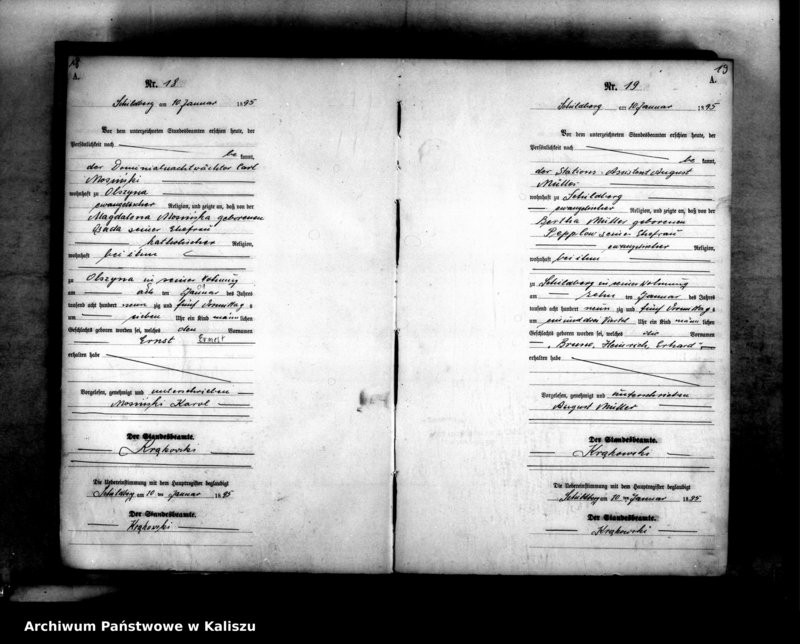 18
A.
Nr. 18
Schildberg am 10 Januar 1895
Vor dem unterzeichneten Standesbeamten erschien heute, der
Persönlichkeit nach
be kannt,
der Dominialnachtwächter Carl
Mosiński
wohnhaft zu Olszyna
evangelischer Religion, und zeigte an, daß von der
Magdalena Mosińska geborenen
seiner Ehefrau
katholischer Religion,
wohnhaft bei ihm
zu Olszyna in seiner Wohnung
am ten Januar des Jahres
tausend acht hundert neun zig und fünf Vormittags
um sieben Uhr ein Kind männlichen
Geschlechts geboren worden sei, welches den Vornamen
Ernst Ernest
erhalten habe
Vorgelesen, genehmigt und unterschrieben
Mosiński Karol
Der Standesbeamte.
Krąkowski
Die Uebereinstimmung mit dem Hauptregister beglaubigt
Schildberg am 10 ten Januar 1895
Der Standesbeamte.
Krąkowski
19
A.
Nr. 19
Schildberg am 10 Januar 1895
Vor dem unterzeichneten Standesbeamten erschien heute, der
Persönlichkeit nach
be kannt,
der Stations-Assistent August
Müller
wohnhaft zu Schildberg
evangelischer Religion, und zeigte an, daß von der
Bertha Müller geborenen
Pepplow seine Ehefrau
evangelischer Religion,
wohnhaft bei ihm
zu Schildberg in seiner Wohnung
am zehn ten Januar des Jahres
tausend acht hundert neun zig und fünf Vormittags
um ein und drei Viertel Uhr ein Kind männlichen
Geschlechts geboren worden sei, welches die Vornamen
„Bruno, Heinrich, Erhard"
erhalten habe
Vorgelesen, genehmigt und unterschrieben
August Müller
Der Standesbeamte.
Krąkowski
Die Uebereinstimmung mit dem Hauptregister beglaubigt
Schildberg am 10 ten Januar 1895
Der Standesbeamte.
Krąkowski
Archiwum Państwowe w Kaliszu